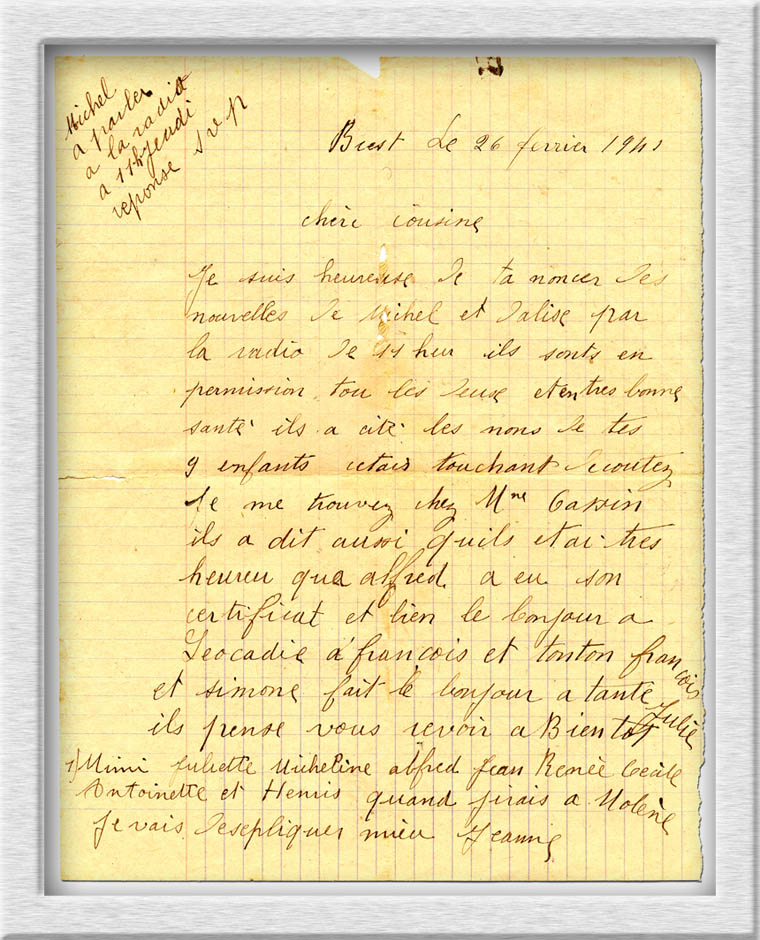 Michel
a parler
a la radio
a 11h jeudi
reponse S V P
Brest Le 26 fevrier 1941
chère cousine
Je suis heureuse de ta noncer des
nouvelles de Michel et dalise par
la radio de 11 heur ils sonts en
permission tou les deuse et en tres bonne
santé ils a cité les nons de tes
9 enfants cetais touchant decoutez
Je me trouvez chez Mme Cassin
ils a dit aussi quils etai tres
heureu que alfred a eu son
certificat et bien le bonjour a
Leocadie a françois et tonton francois
et simone fait le bonjour a tante Julie
ils pense vous revoir a Bientot
Mimi Juliette Micheline alfred Jean Renée Cecile
Antoinette et Henris quand jirais a Molène
Je vais desepliquer mieu Jeanne